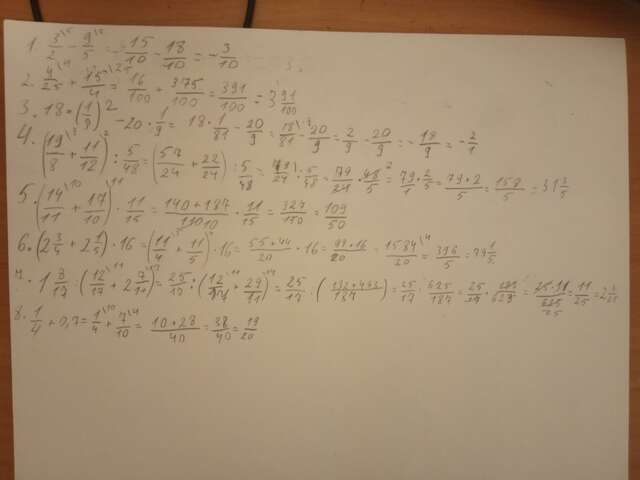 1. 3/2 \5 - 9/5 \2 = 15/10 - 18/10 = - 3/10
2. 4/25 \4 + 15/4 \25 = 16/100 + 375/100 = 391/100 = 3 91/100
3. 18 * (1/9)2 - 20 * 1/9 = 18 * 1/81 - 20/9 = 18/81 - 20/9 = 2/9 - 20/9 = - 18/9 = - 2/1
4. (19/8 \3 + 11/12 \2) : 5/48 = (57/24 + 22/24) : 5/48 = 79/24 : 5/48 = 79/24 * 48/5 = 79/1 * 2/5 = 79*2/5 = 158/5 = 31 3/5
5. (14/11 \10 + 17/10 \11) * 11/15 = 140+187/110 * 11/15 = 327/150 = 109/50
6. (2 3/4 + 2 1/5) * 16 = (11/4 \5 + 11/5 \4) * 16 = 55+44/20 * 16 = 99*16/20 = 1584/20 \4 = 396/5 = 79 1/5
7. 1 8/17 : (12/17 \11 + 2 7/11 \17) = 25/17 : (12/17 \11 + 29/11 \17) = 25/17 : (132+493/187) = 25/17 : 625/187 = 25/17 * 187/625 = 25*11/625 = 11/25
8. 1/4 + 0,7 = 1/4 \10 + 7/10 \4 = 10+28/40 = 38/40 = 19/20